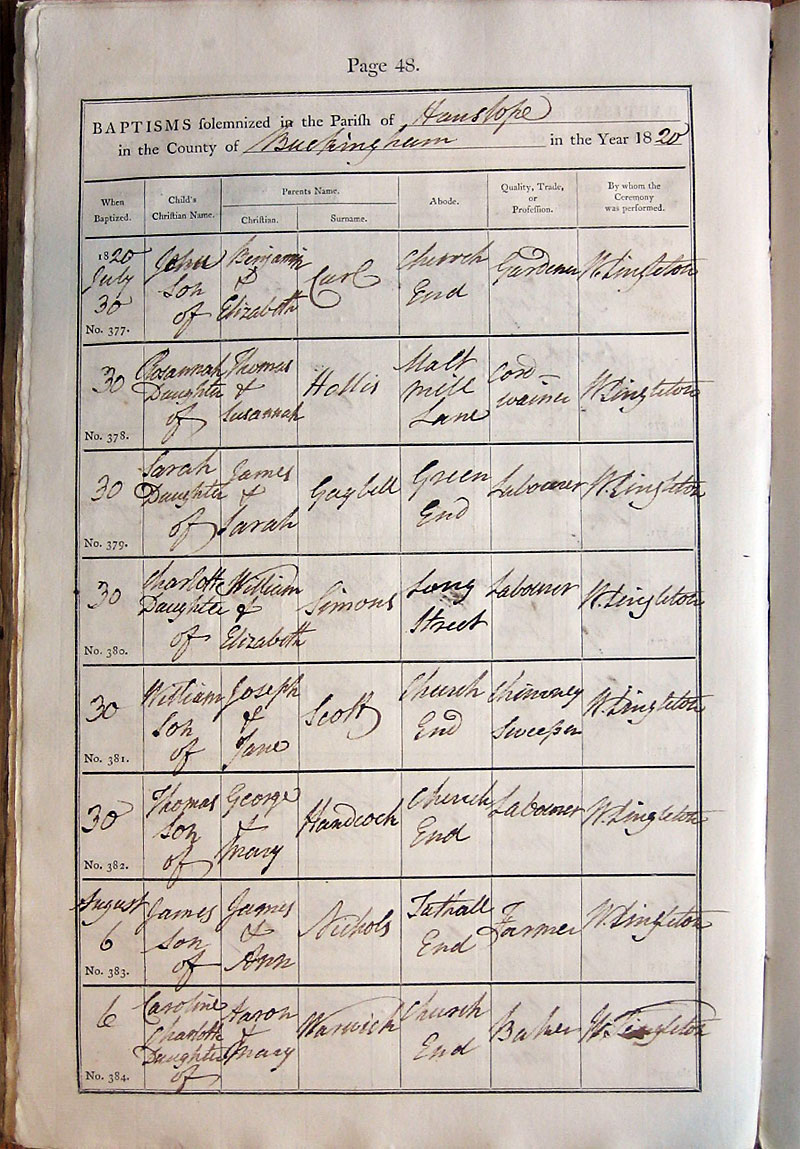 Page 48.
BAPTISMS solemnized in the Parish of Hanslope
in the County of Buckingham in the Year 1820
When Baptized. Child's Christian Name. Parents Name. Christian. Surname. Abode. Quality, Trade, or Profession. By whom the Ceremony was performed.
1820 July 30 No. 377. John Son of Benjamin & Elizabeth Carl Church End Gardener W. Singleton
30 No. 378. Rosannah Daughter of Thomas & Susannah Hollis Malt Mill Lane Cord wainer W. Singleton
30 No. 379. Sarah Daughter of James & Sarah Gaybell Green End Labourer W. Singleton
30 No. 380. Charlotte Daughter of William & Elizabeth Simons Long Street Labourer W. Singleton
30 No. 381. William Son of Joseph & Jane Scott Church End Chimney Sweeper W. Singleton
30 No. 382. Thomas Son of George & Mary Handcock Church End Labourer W. Singleton
August 6 No. 383. James Son of James & Ann Nichols Tathall End Farmer W. Singleton
6 No. 384. Caroline Charlotte Daughter of Aaron & Mary Warwick Church End Baker W. Singleton